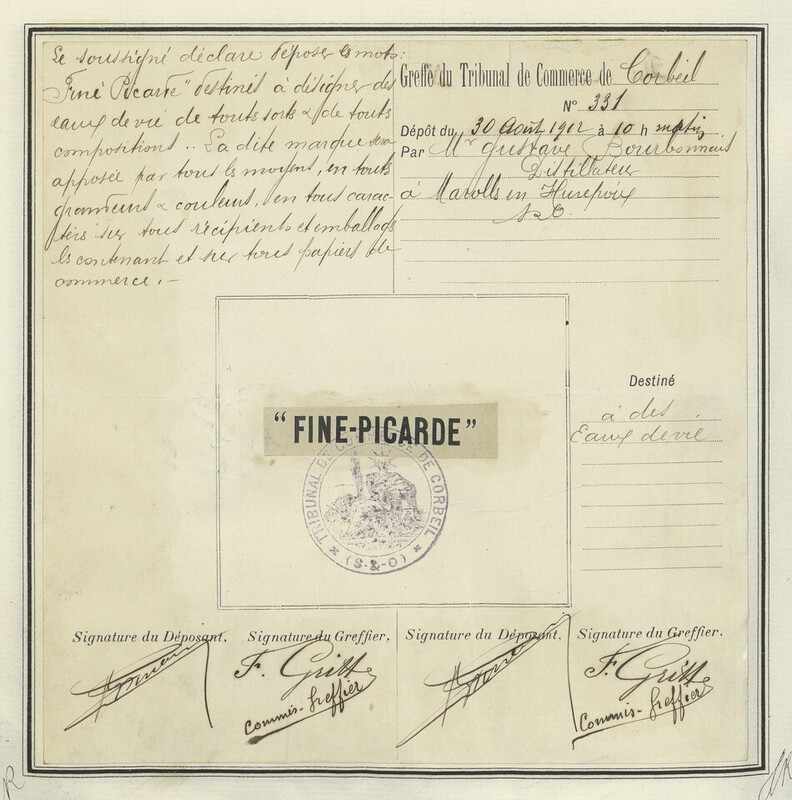 Le soussigné déclare déposer les mots:
"Fine Picarde" destinés à désigner des
eaux de vie de touts sorts & de touts
compositions.. La dite marque sera
apposée par tous les moyens, en touts
grandeurs & couleurs, en tous carac-
tères sur tous récipients et emballages
les contenant et sur tous papiers de
commerce. —
Greffe du Tribunal de Commerce de Corbeil
N° 331
Dépôt du 30 Août 1912 à 10 h matin
Par Mr Gustave Bourbonnais
Distillateur
à Marolls en Hurepoix
S & O.
"FINE-PICARDE"
TRIBUNAL DE COMMERCE DE CORBEIL
(S-&-O)
Destiné
à des
Eaux de vie
Signature du Déposant. Signature du Greffier. Signature du Déposant. Signature du Greffier.
F. Gritt F. Gritt
Commis-Greffier Commis-Greffier